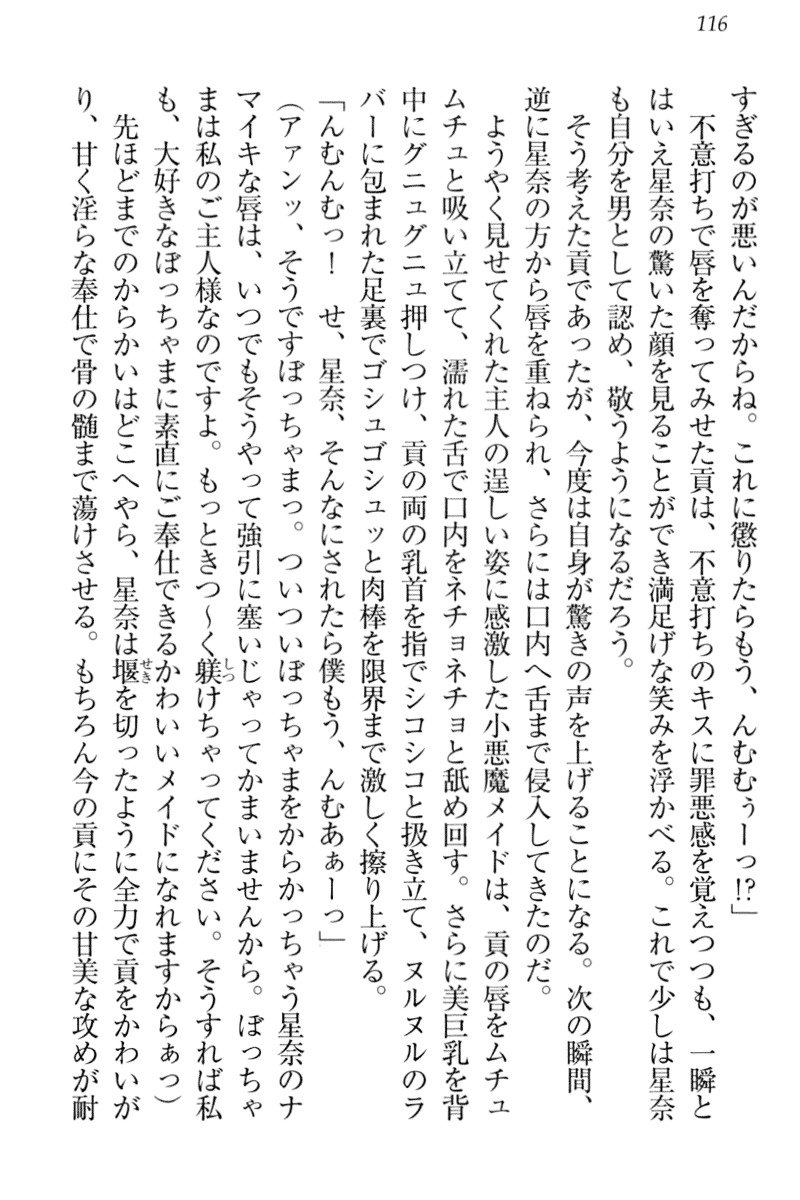 116
すぎるのが悪いんだからね。これに懲りたらもう、んむむぅーっ!?」
　不意打ちで唇を奪ってみせた貢は、不意打ちのキスに罪悪感を覚えつつも、一瞬と
はいえ星奈の驚いた顔を見ることができ満足げな笑みを浮かべる。これで少しは星奈
も自分を男として認め、敬うようになるだろう。
　そう考えた貢であったが、今度は自身が驚きの声を上げることになる。次の瞬間、
逆に星奈の方から唇を重ねられ、さらには口内へ舌まで侵入してきたのだ。
　ようやく見せてくれた主人の逞しい姿に感激した小悪魔メイドは、貢の唇をムチュ
ムチュと吸い立てて、濡れた舌で口内をネチョネチョと舐め回す。さらに美巨乳を背
中にグニュグニュ押しつけ、貢の両の乳首を指でシコシコと扱き立て、ヌルヌルのラ
バーに包まれた足裏でゴシュゴシュッと肉棒を限界まで激しく擦り上げる。
「んむんむっ！　せ、星奈、そんなにされたら僕もう、んむあぁーっ」
（アァンッ、そうですぼっちゃまっ。ついついぼっちゃまをからかっちゃう星奈のナ
マイキな唇は、いつでもそうやって強引に塞いじゃってかまいませんから。ぼっちゃ
まは私のご主人様なのですよ。もっときつ～く躾しつけちゃってください。そうすれば私
も、大好きなぼっちゃまに素直にご奉仕できるかわいいメイドになれますからぁっ）
　先ほどまでのからかいはどこへやら、星奈は堰せきを切ったように全力で貢をかわいが
り、甘く淫らな奉仕で骨の髄まで蕩けさせる。もちろん今の貢にその甘美な攻めが耐